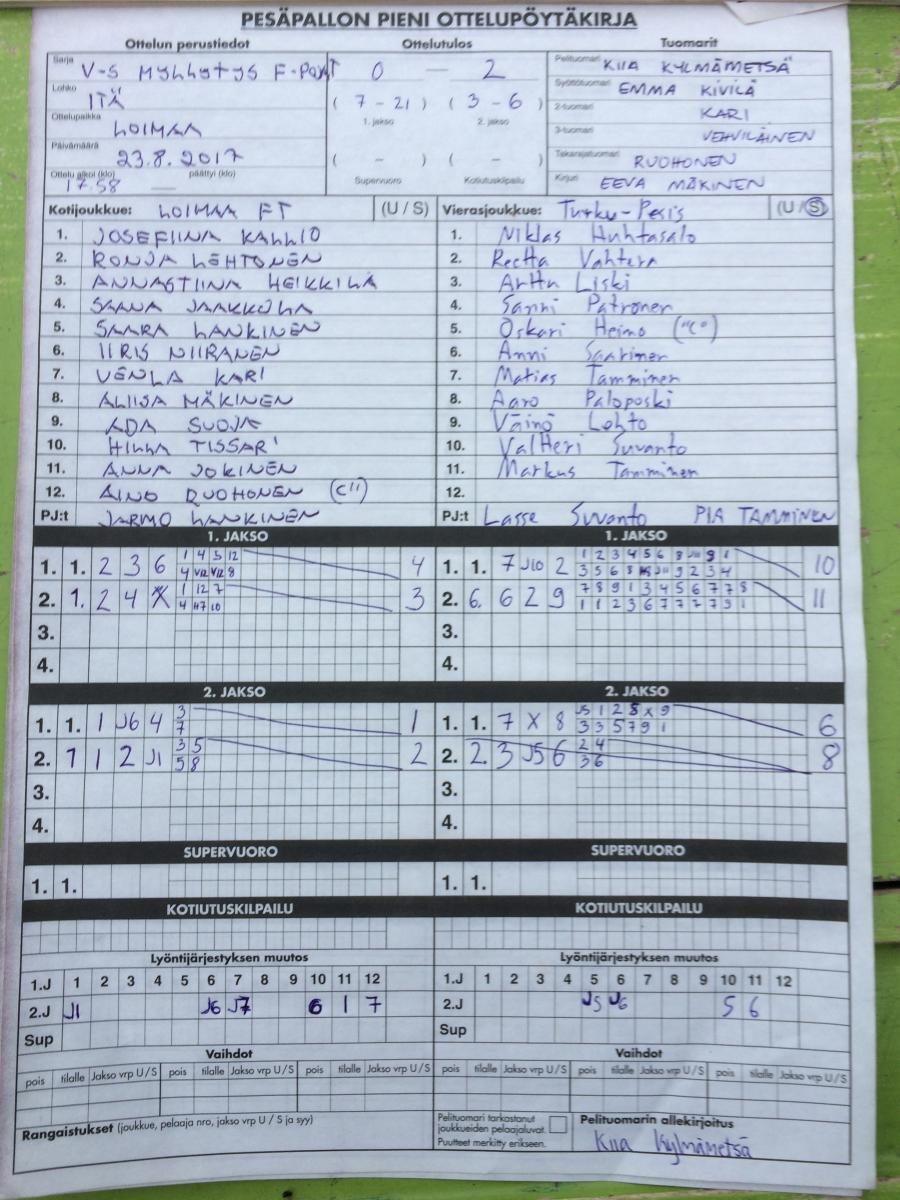 PESÄPALLON PIENI OTTELUPÖYTÄKIRJA
Ottelun perustiedot Ottelutulos Tuomarit
Sarja V-S MYLLYTYS F-POJT 0 — 2 Pelituomari KIIA KYLMÄMETSÄ
Lohko ITÄ (7 - 21) (3 - 6) Syöttötuomari EMMA KIVILÄ
Ottelupaikka LOIMAA 1. jakso 2. jakso 2-tuomari KARI
3-tuomari VEHVILÄINEN
Päivämäärä 23.8.2017 ( - ) ( - ) Takarajatuomari RUOHONEN
Ottelu alkoi (klo) 17.58 päättyi (klo) Supervuoro Kotiutuskilpailu Kirjuri EEVA MÄKINEN
Kotijoukkue: LOIMAA FT (U / S) Vierasjoukkue: Turku-Pesis (U / S)
1. JOSEFIINA KALLIO 1. Niklas Huhtasalo
2. RONJA LEHTONEN 2. Reetta Vahtera
3. ANNASTIINA HEIKKILÄ 3. Arttu Liski
4. SAANA JAAKKOLA 4. Sanni Patronen
5. SAARA LANKINEN 5. Oskari Heimo ("C")
6. IIRIS NIIRANEN 6. Anni Saarinen
7. VENLA KARI 7. Matias Tamminen
8. ALIISA MÄKINEN 8. Aaro Paloposki
9. ADA SUOJA 9. Väinö Lehto
10. HILLA TISSARI 10. Valtteri Suvanto
11. ANNA JOKINEN 11. Markus Tamminen
12. AINO RUOHONEN (C") 12.
PJ:t JARMO LANKINEN PJ:t Lasse Suvanto PIA TAMMINEN
1. JAKSO 1. JAKSO
1. 1. 2 3 6 1 4 5 12 4 1. 1. 7 J10 2 1 2 3 4 5 6 8 J11 9 1 10
4 V12 V12 8 3 5 6 8 J11 9 2 3 4
2. 1. 2 4 X 1 12 7 3 2. 6. 6 2 9 7 8 9 1 3 4 5 6 7 7 8 11
4 H7 10 1 1 2 3 6 7 7 7 7 9 1
3. 3.
4. 4.
2. JAKSO 2. JAKSO
1. 1. 1 J6 4 3 1 1. 1. 7 X 8 J5 1 2 8 X 9 6
7 3 3 5 7 9 1
2. 7 1 2 J1 3 5 2 2. 2. 3 J5 6 2 4 8
5 8 3 6
3. 3.
4. 4.
SUPERVUORO SUPERVUORO
1. 1. 1. 1.
KOTIUTUSKILPAILU KOTIUTUSKILPAILU
Lyöntijärjestyksen muutos Lyöntijärjestyksen muutos
1.J 1 2 3 4 5 6 7 8 9 10 11 12 1.J 1 2 3 4 5 6 7 8 9 10 11 12
2.J J1 J6 J7 6 1 7 2.J J5 J6 5 6
Sup Sup
Vaihdot Vaihdot
pois tilalle Jakso vrp U / S pois tilalle Jakso vrp U / S pois tilalle Jakso vrp U / S pois tilalle Jakso vrp U / S pois tilalle Jakso vrp U / S pois tilalle Jakso vrp U / S
Rangaistukset (joukkue, pelaaja nro, jakso vrp U / S ja syy) Pelituomari tarkastanut joukkueiden pelaajaluvat. Puutteet merkitty erikseen. Pelituomarin allekirjoitus
Kiia Kylmämetsä